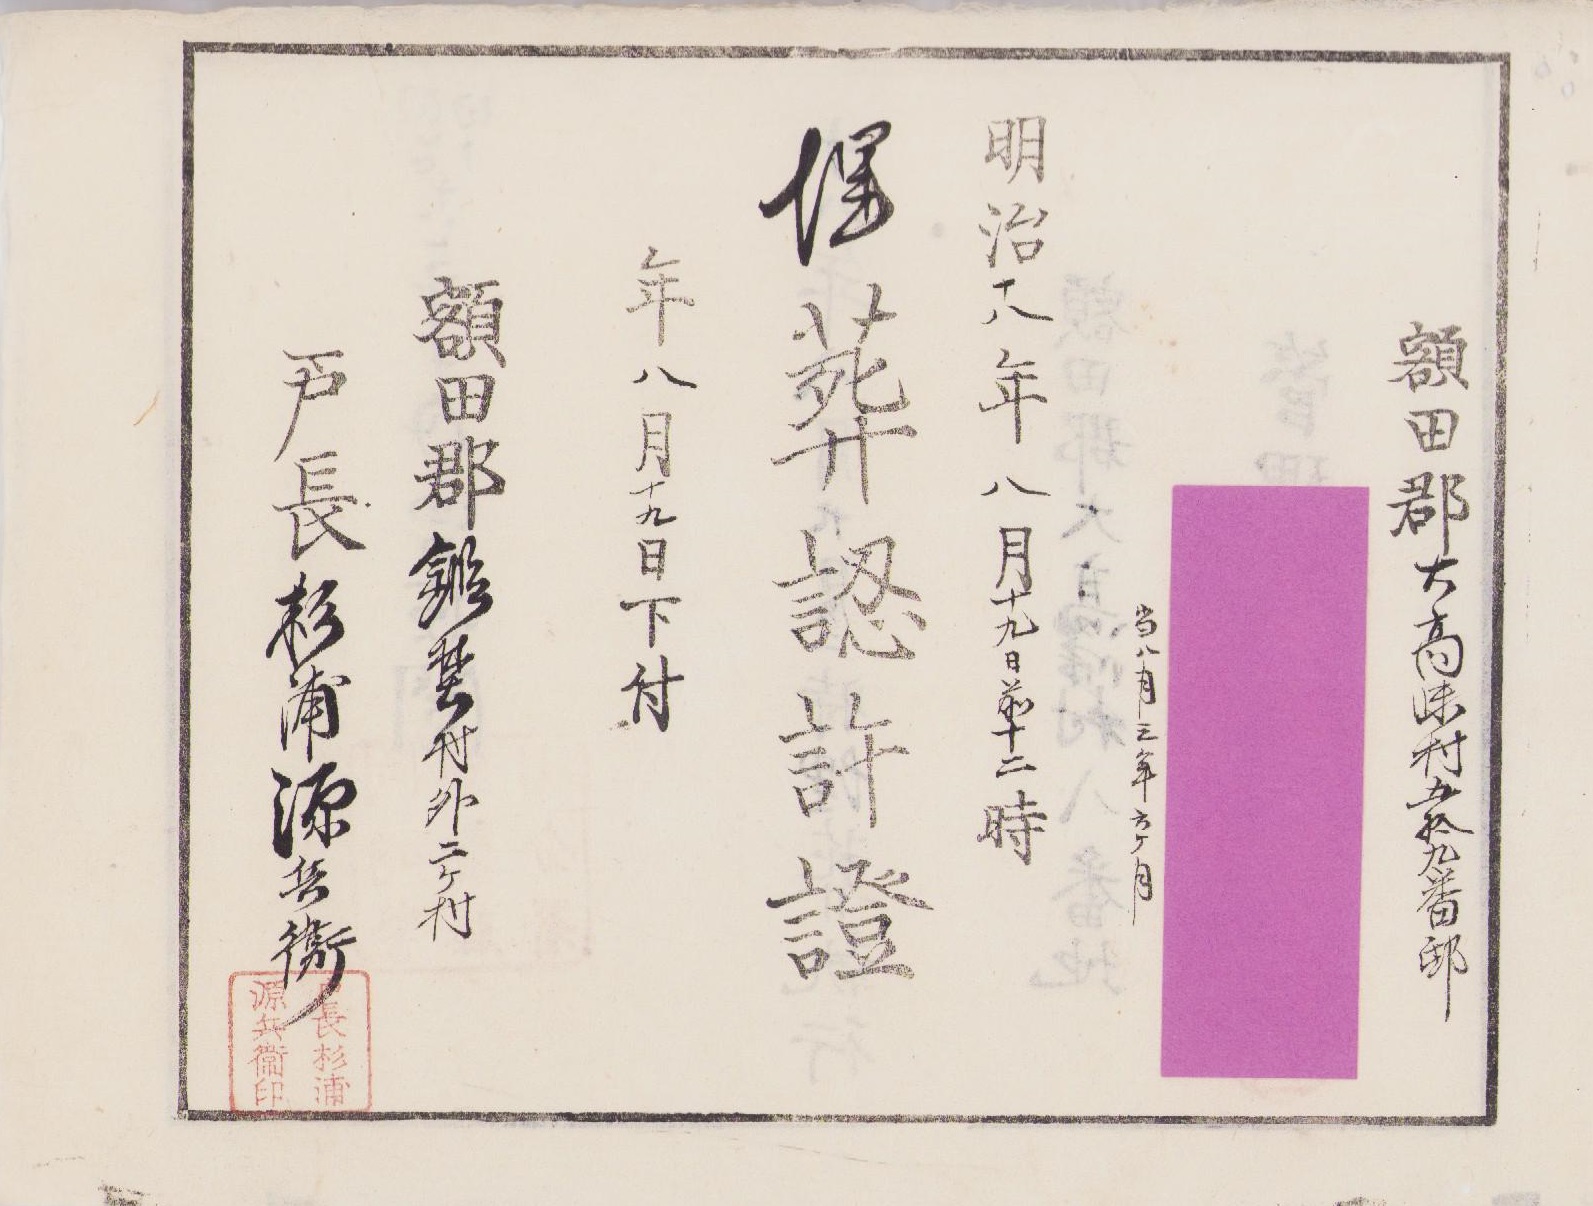 額田郡大高味村五拾九番邸
当八月三年六ヶ月
明治十八年八月十九日前十二時
埋葬認許證
年八月十九日下付
額田郡 村外二ヶ村
戸長 杉浦源兵衛
戸長杉浦
源兵衛印